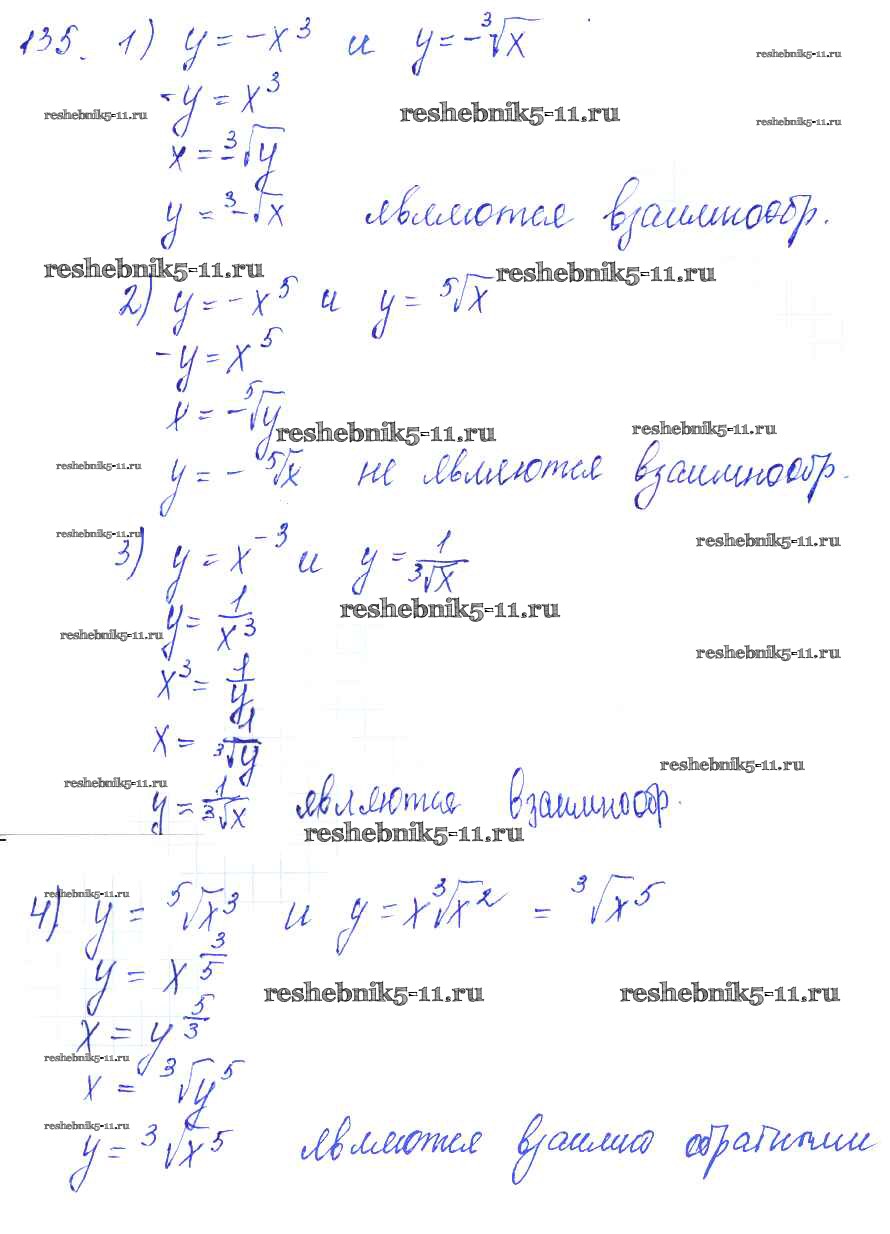 135. 1) y = -x³ и y = -∛x
reshebnik5-11.ru
-y = x³
reshebnik5-11.ru reshebnik5-11.ru reshebnik5-11.ru
x = -∛y
y = ∛-x являются взаимнообр.
reshebnik5-11.ru reshebnik5-11.ru
2) y = -x⁵ и y = ⁵√x
-y = x⁵
x = -⁵√y
reshebnik5-11.ru reshebnik5-11.ru
reshebnik5-11.ru
y = - ⁵√x не являются взаимнообр.
reshebnik5-11.ru reshebnik5-11.ru
3) y = x⁻³ и y = 1/∛x
reshebnik5-11.ru
y = 1/x³
reshebnik5-11.ru reshebnik5-11.ru
x³ = 1/y
x = 1/∛y
reshebnik5-11.ru
reshebnik5-11.ru
y = 1/∛x являются взаимнообр.
reshebnik5-11.ru
reshebnik5-11.ru
4) y = ⁵√x³ и y = x∛x² = ∛x⁵
y = x^(3/5)
reshebnik5-11.ru reshebnik5-11.ru
x = y^(5/3)
reshebnik5-11.ru
x = ∛y⁵
reshebnik5-11.ru
y = ∛x⁵ являются взаимно обратными